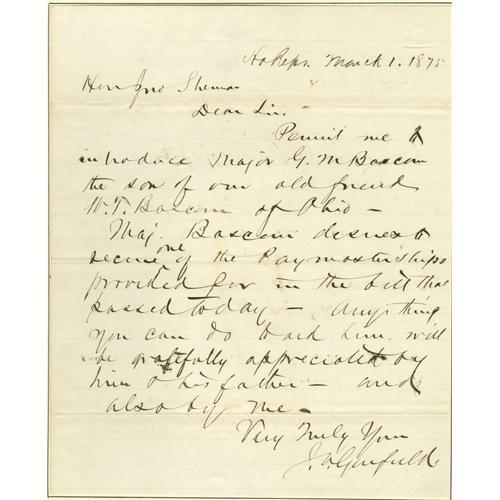 Ho Reps. March 1. 1875
Hon Jno Sherman
Dear Sir,
Permit me to
introduce Major G. M Bascom
the son of our old friend
W. T. Bascom of Ohio –
Maj. Bascom desires to
secure one of the Paymasterships
provided for in the bill that
passed today – Anything
you can do to aid him will
be gratefully appreciated by
him & his father – and
also by me –
Very Truly Yours
J. A. Garfield